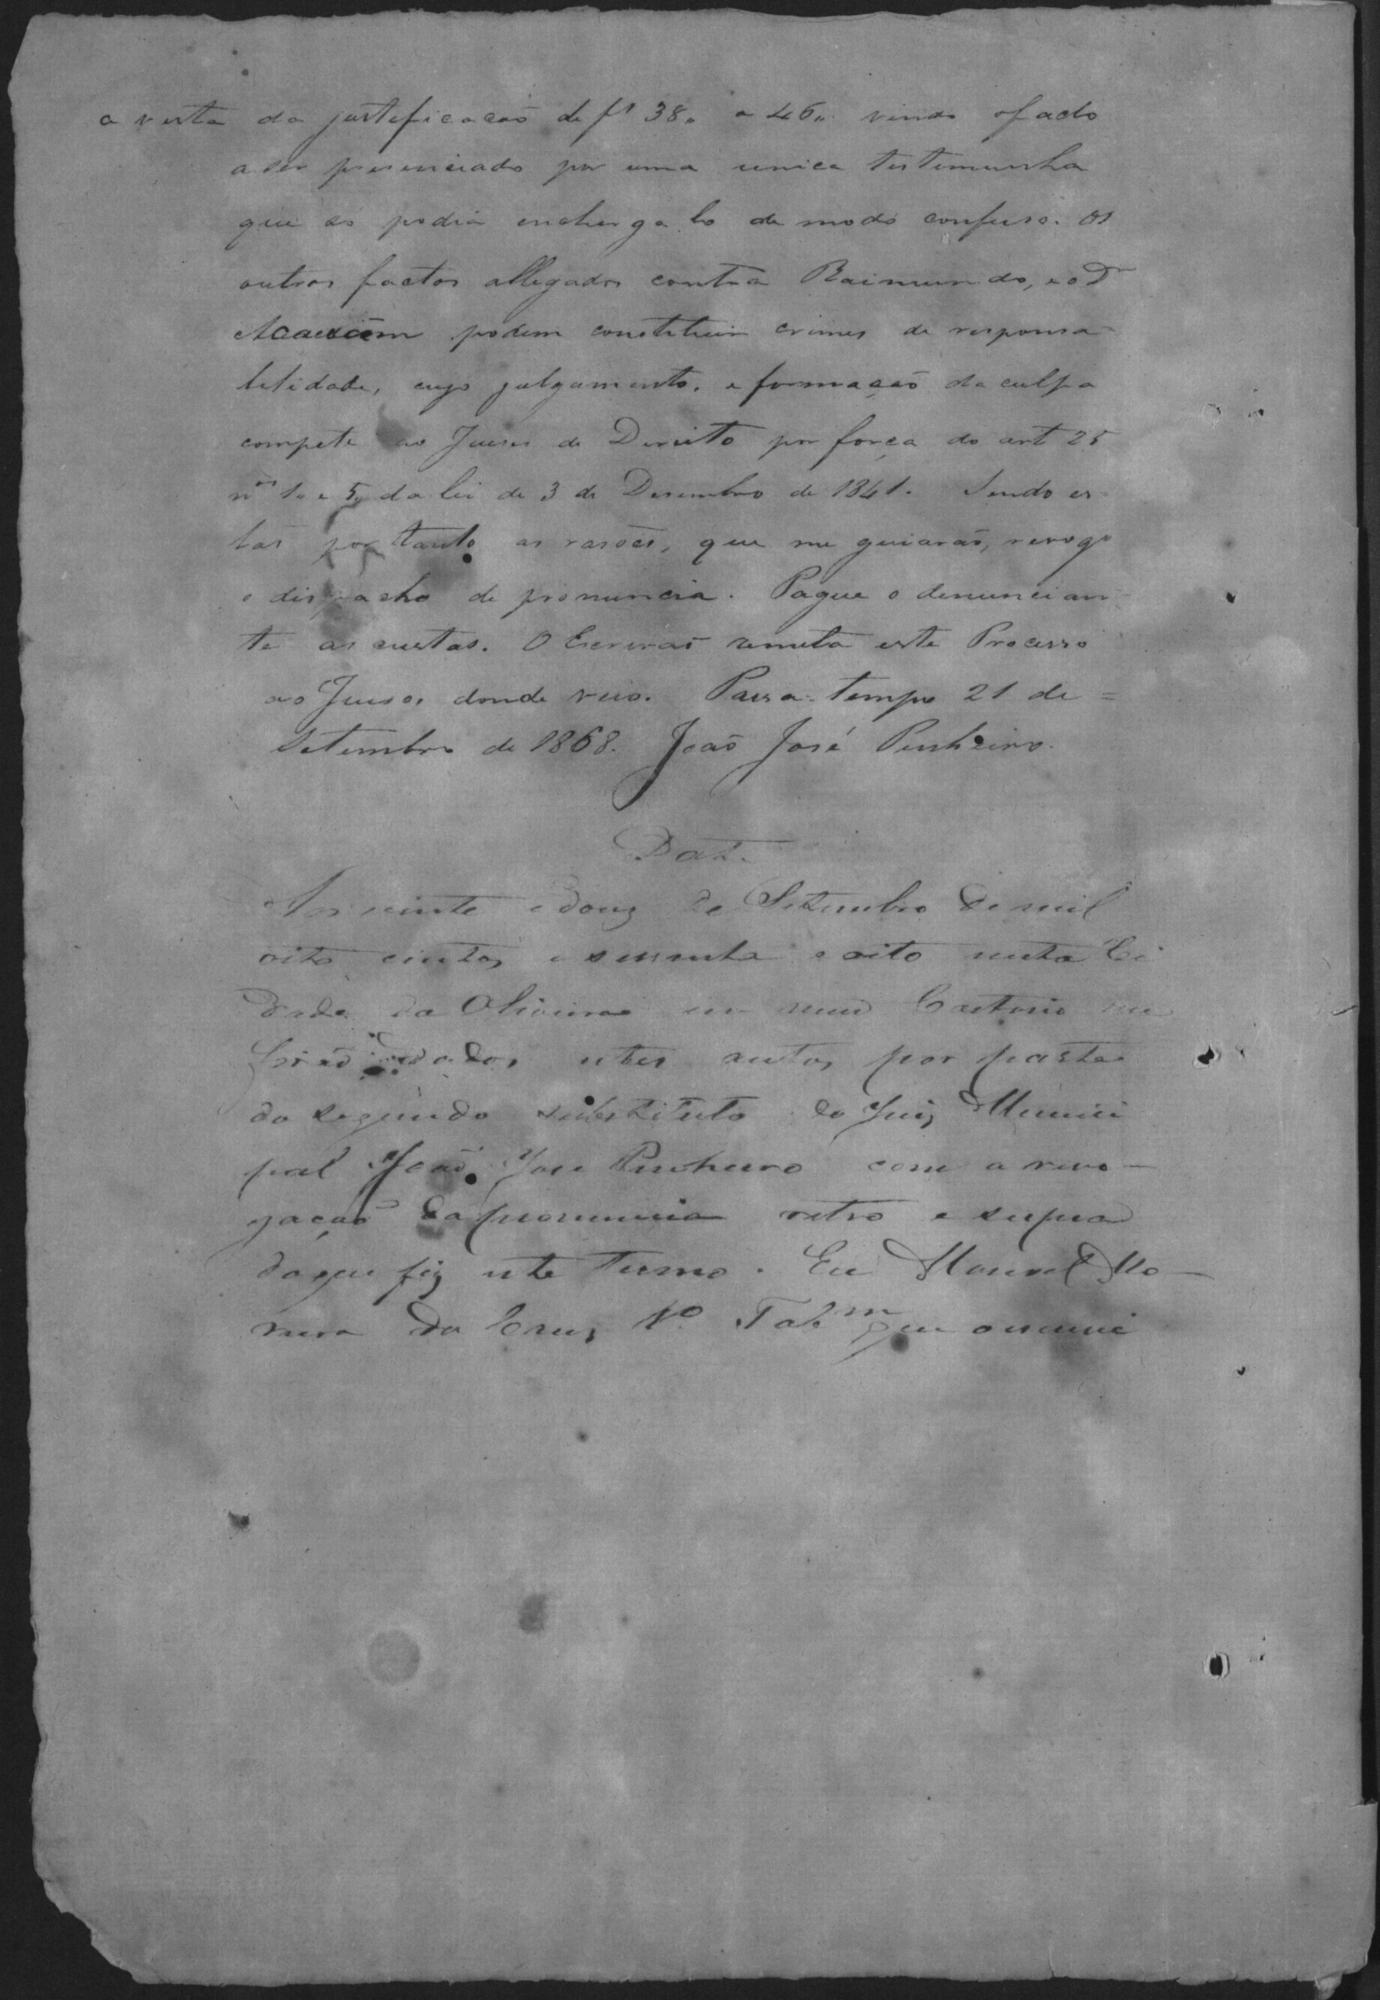 a vista da justificacaõ de fs 38„ a 46„ vindo ofacto
a ser presenciado por uma unica testemunha
que so podia enxerga-lo de modo confuso. Os
outros factos allegados contra Raimundo, e o Dr
podem constituir crimes de responsa-
bilidade, cujo julgamento, e formaçaõ da culpa
compete ao Juises de Direito por força do art 25
nos 1„ e 5„ da lei de 3 de Desembro de 1841. Sendo es-
tas por tanto as rasões, que me guiaraõ, revogo
o dispacho de pronuncia. Pague o denuncian-
te as custas. O Escrivaõ remeta este Processo
ao Juiso, donde veio. Passa-tempo 21 de =
Setembro de 1868. Joaõ José Pinheiro.
Data.
Aos vinte e dous de Setembro de mil
oito centos e sessenta e oito nesta Ci
dade da Oliveira em meu Cartorio me
foraõ dados estes autos por parte
do segundo substituto do Juiz Munici
pal Joaõ Jose Pinheiro com a revo-
gaçaõ da pronuncia retro e supra
do que fiz este termo. Eu Manoel Mo-
reira da Cruz 1º Tabam que o escrevi